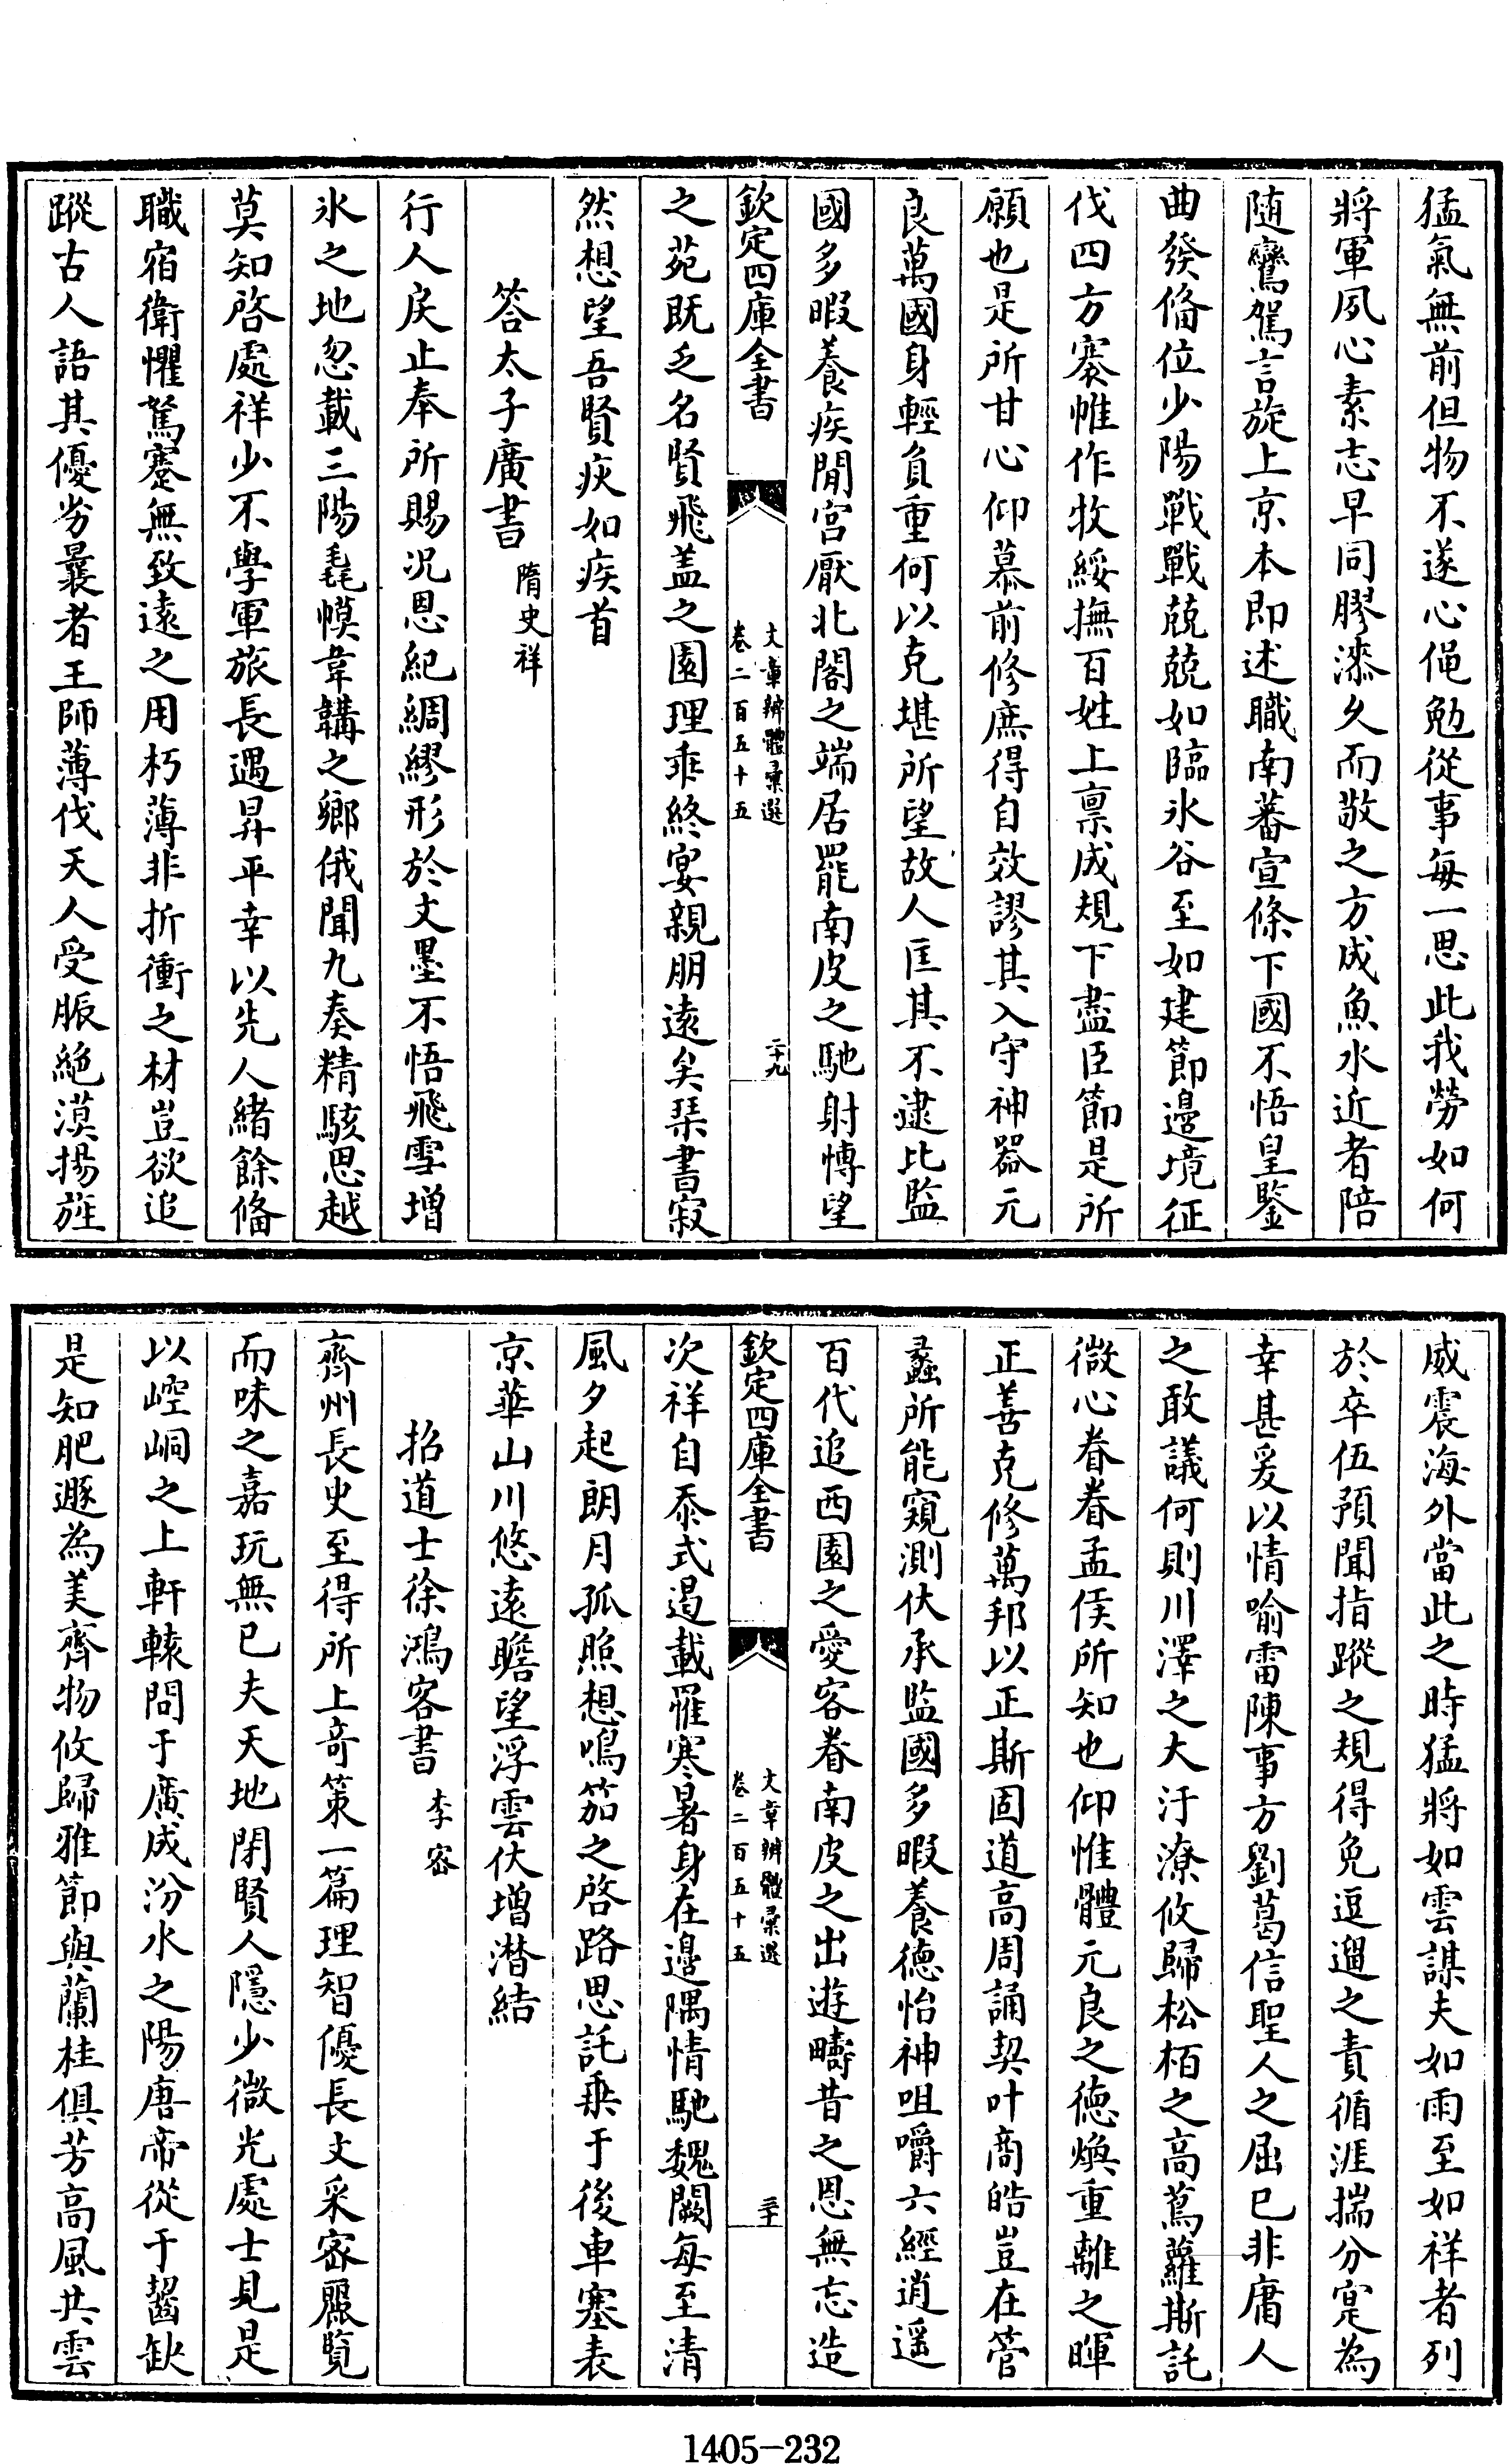 猛氣無前但物不遂心僶勉從事每一思此我勞如何
將軍夙心素志早同膠漆久而敬之方成魚水近者陪
随鸞駕言旋上京本即述職南蕃宣條下國不悟皇鑒
曲發俻位少陽戰戰兢兢如臨氷谷至如建節邉境征
伐四方褰帷作牧綏撫百姓上禀成規下盡臣節是所
願也是所甘心仰慕前修庶得自效謬其入守神器元
良萬國身輕負重何以克堪所望故人匡其不逮比監
國多暇養疾閒宫厭北閣之端居罷南皮之馳射博望
欽定四庫全書
文章辨體彚選
卷二百五十五
二十九
之苑既乏名賢飛盖之園理乖終宴親朋逺矣栞書寂
然想望吾賢疢如疾首
答太子廣書
隋史祥
行人戾止奉所賜况恩紀綢繆形於文墨不悟飛雪增
氷之地忽載三陽毳幙韋韝之鄉俄聞九奏精駭思越
莫知啓處祥少不學軍旅長遇昇平幸以先人緒餘俻
職宿衛懼駑蹇無致逺之用朽薄非折衝之材豈欲追
蹤古人語其優劣曩者王師薄伐天人受脤絶漠揚旌
威震海外當此之時猛將如雲謀夫如雨至如祥者列
於卒伍預聞指蹤之規得免逗遛之責循涯揣分寔為
幸甚爰以情喻雷陳事方劉葛信聖人之屈已非庸人
之敢議何則川澤之大汙潦攸歸松栢之高蔦蘿斯託
微心眷眷孟侯所知也仰惟體元良之徳煥重離之暉
正善克修萬邦以正斯固道高周誦契叶商皓豈在管
蠡所能窺測伏承監國多暇養德怡神咀嚼六經逍遥
百代追西園之愛客眷南皮之出遊疇昔之恩無忘造
欽定四庫全書
文章辨體彚選
卷二百五十五
三十
次祥自忝式遏載罹寒暑身在邉隅情馳魏闕每至清
風夕起朗月孤照想鳴笳之啓路思託乗于後車塞表
京華山川悠逺瞻望浮雲伏增潜結
招道士徐鴻客書
李密
齊州長史至得所上奇策一篇理智優長文采宻麗覧
而味之嘉玩無已夫天地閉賢人隱少微光處士見是
以崆峒之上軒轅問于廣成汾水之陽唐帝從于齧缺
是知肥遯為美齊物攸歸雅節與蘭桂俱芳高風共雲
1405-232